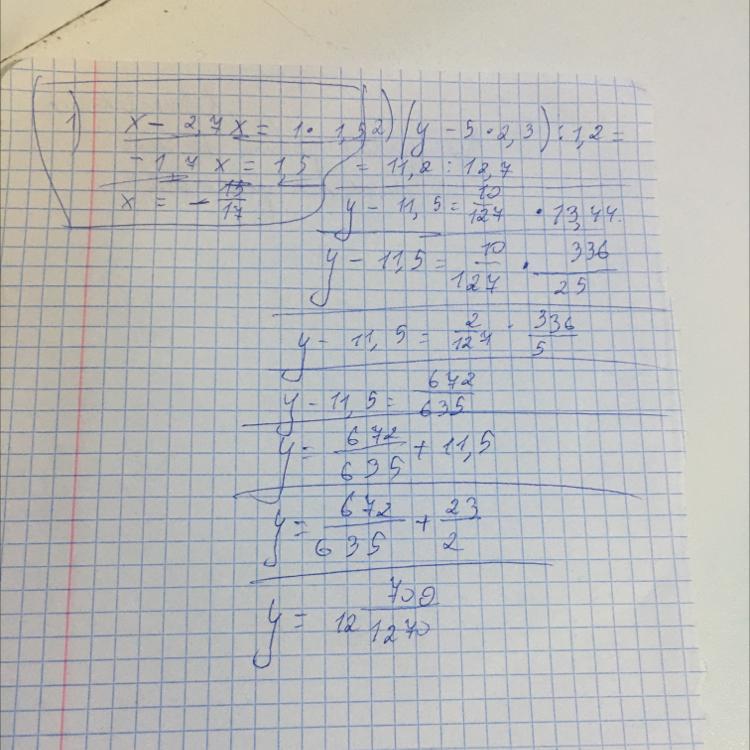 1) x - 2,7x = 1 · 1,5
- 1,7x = 1,5
x = - 15/17
2) (y - 5 · 2,3) : 1,2 =
= 11,2 : 12,7
y - 11,5 = 10/127 · 13,44.
y - 11,5 = 10/127 · 336/25
y - 11,5 = 2/127 · 336/5
y - 11,5 = 672/635
y = 672/635 + 11,5
y = 672/635 + 23/2
y = 12 709/1270